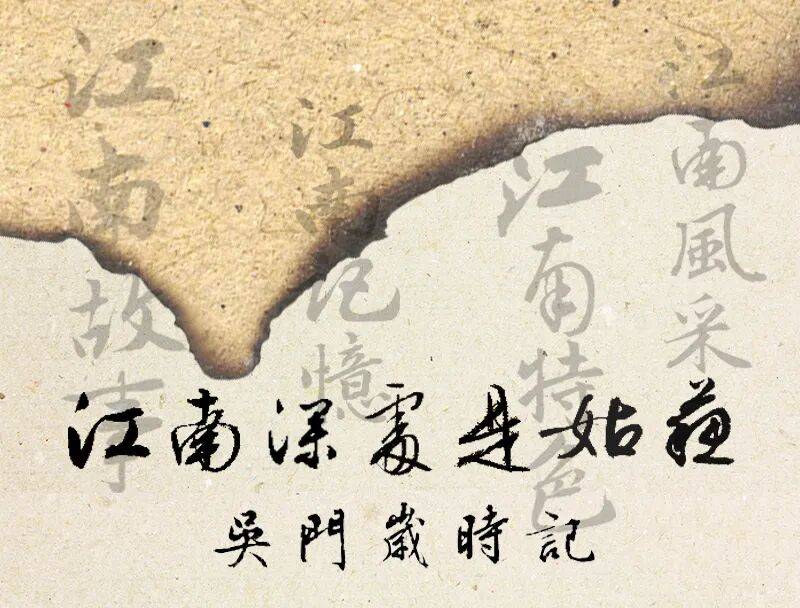 江南故事
江南记憶
江南特色
江南風采
江南深處是姑蘇
吳門歲時記